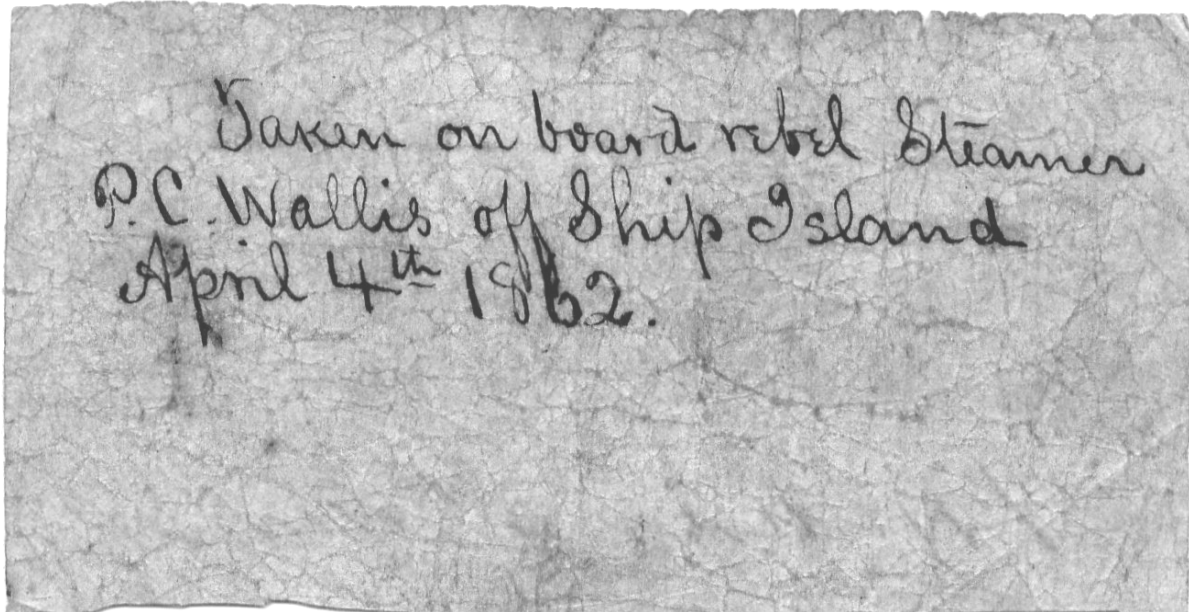 Taken on board rebel Steamer
P.C. Wallis off Ship Island
April 4th 1862.